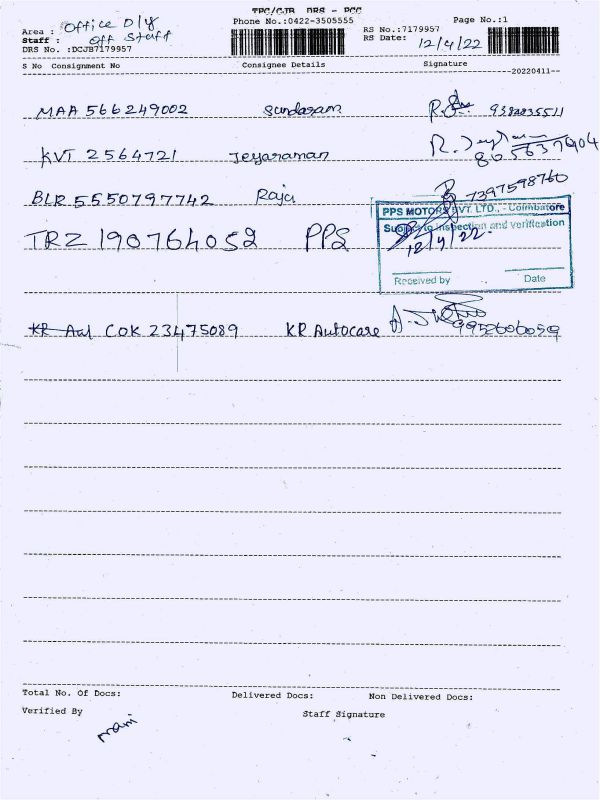 TPC/CJB DRS - PCC
Area : Office Dly Phone No.:0422-3505555 Page No.:1
Staff : Off Staff RS No.:7179957
DRS No. :DCJB7179957 RS Date: 12/4/22
S No Consignment No Consignee Details Signature
20220411
MAA 566249002 Sundaram
KVT 2564721 Jeyaraman
BLR 5550797742 Raja 7397598760
PPS MOTORS PVT. LTD., - Coimbatore
Subject to inspection and verification
TRZ 190764052 PPS 12/4/22
Received by Date
COK 23475089 KR Autocare 9952606059
Total No. Of Docs: Delivered Docs: Non Delivered Docs:
Verified By Staff Signature
mani